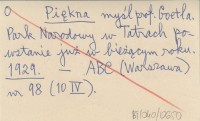 O Piękna myśl prof. Goetla.
Park Narodowy w Tatrach po-
wstanie już w bieżącym roku.
1929. — ABC (Warszawa)
nr 98 (10 IV).